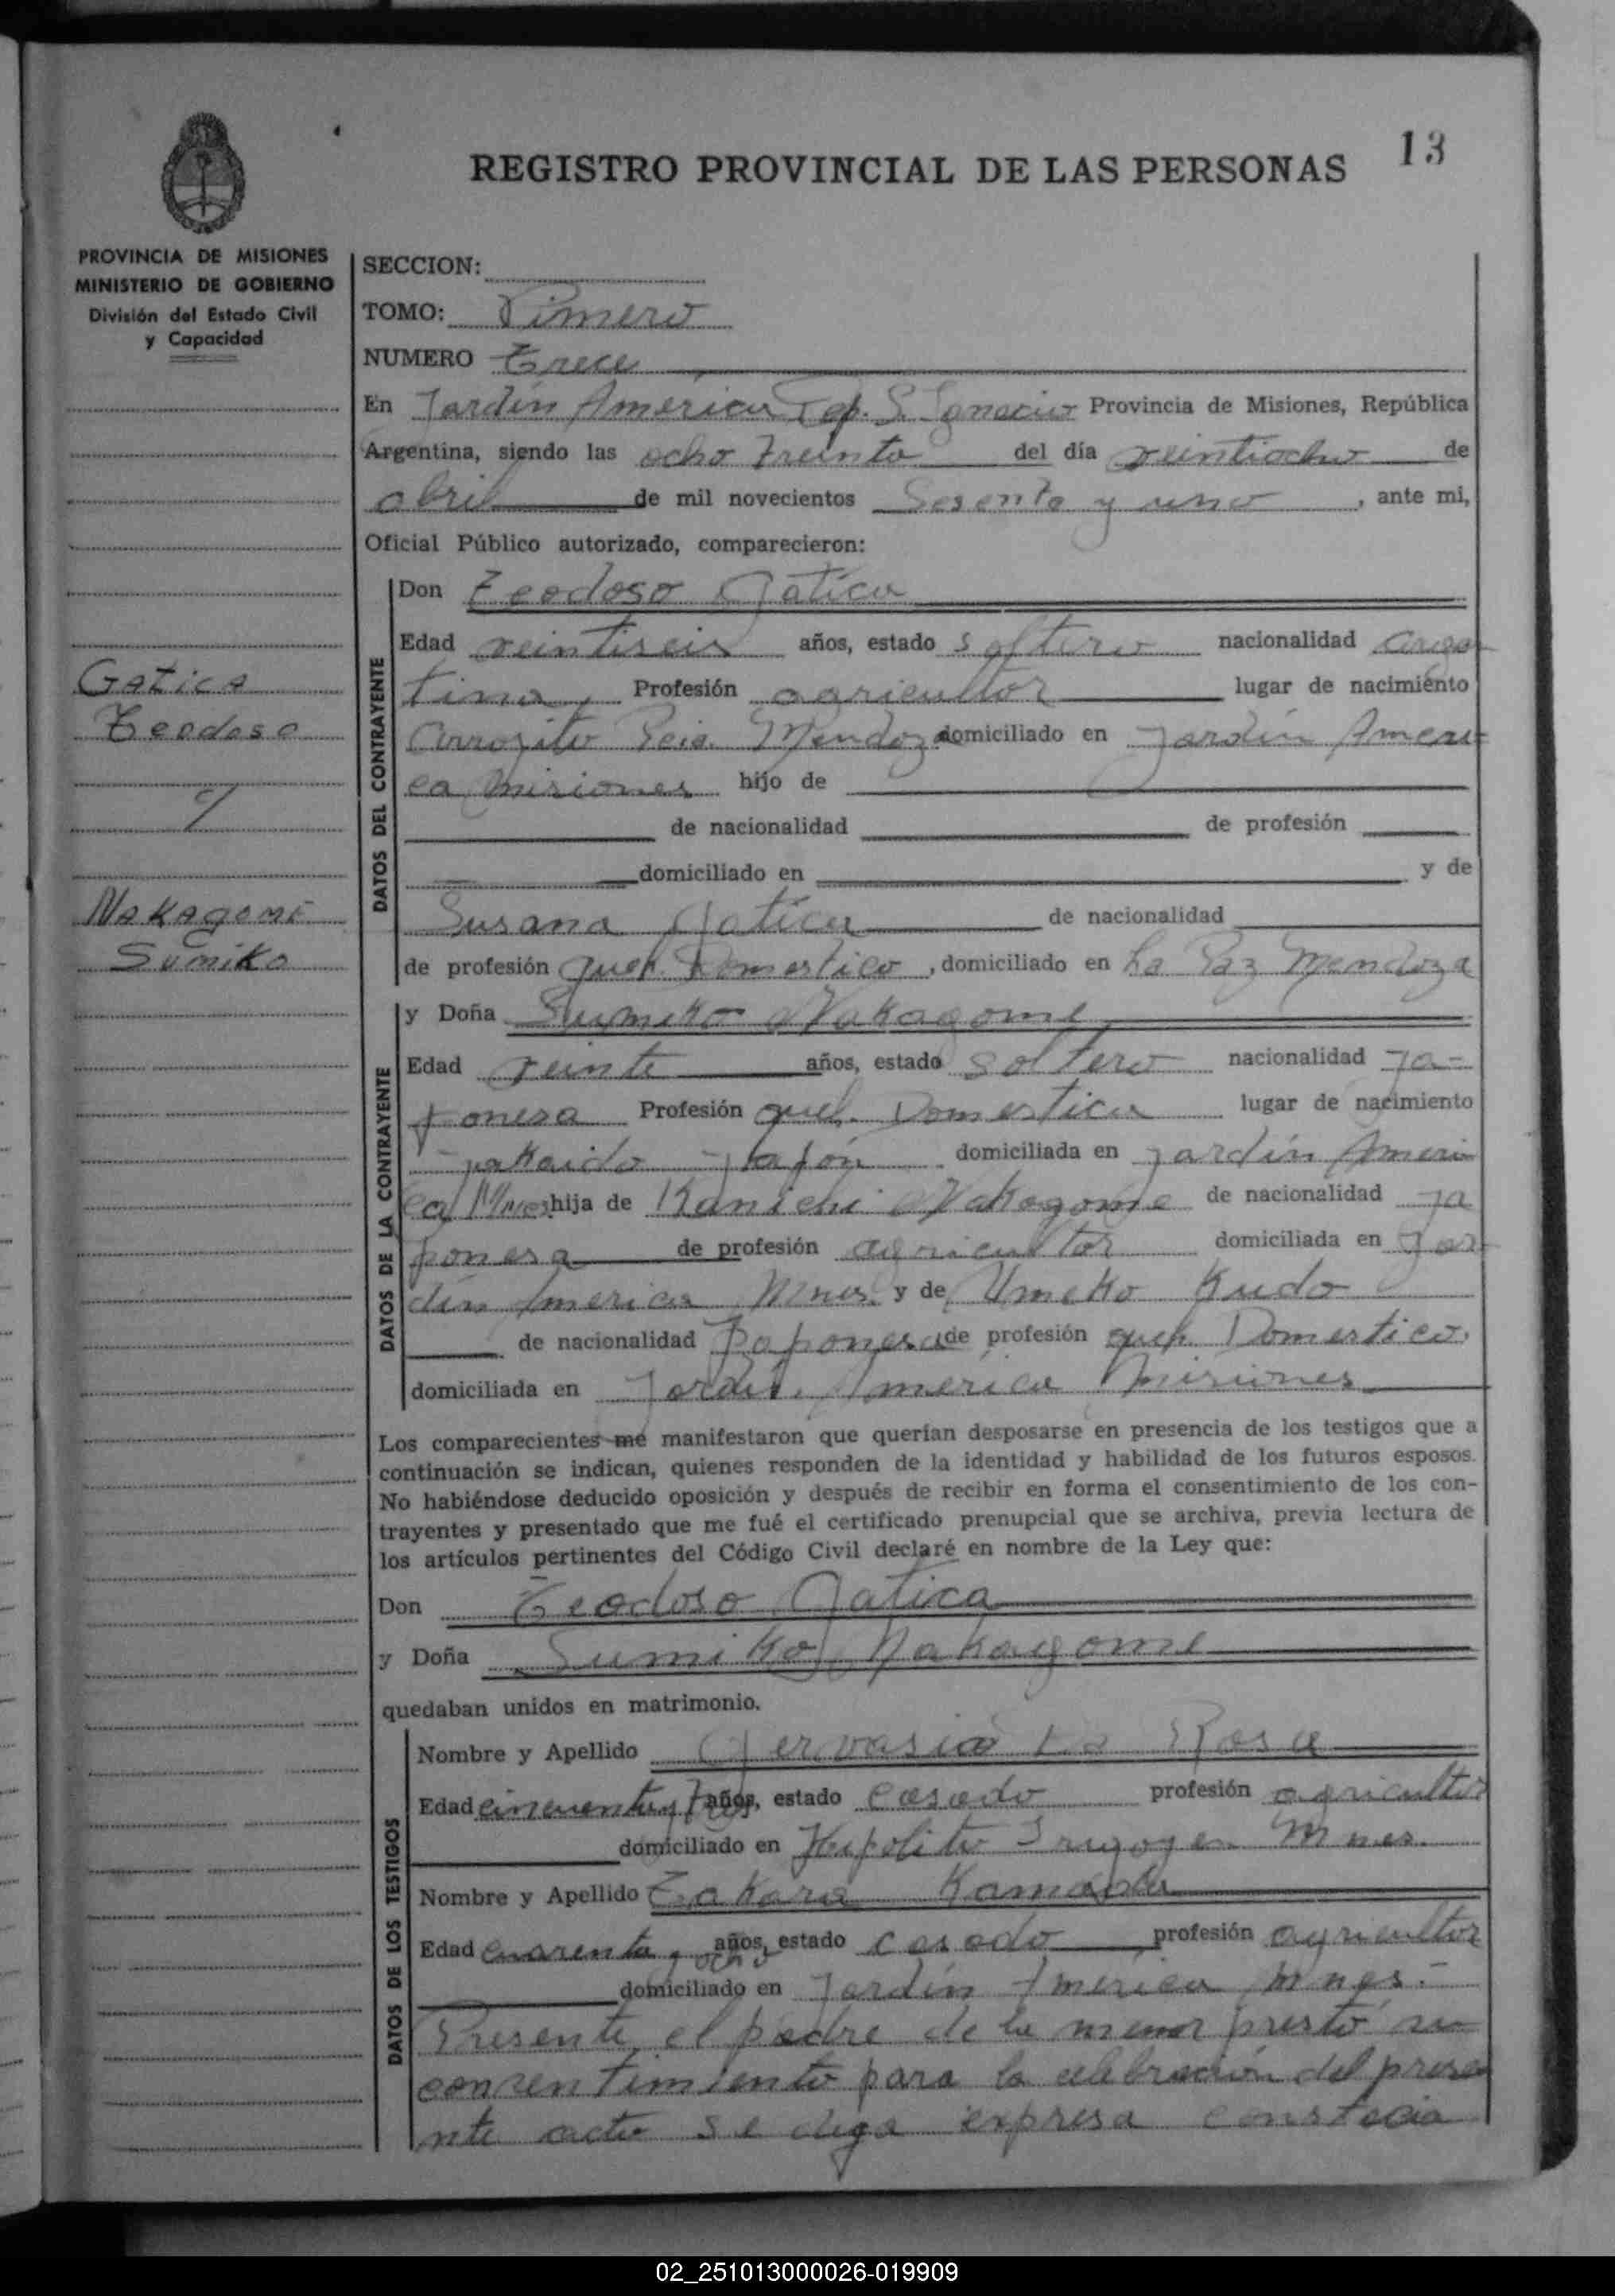 13
REGISTRO PROVINCIAL DE LAS PERSONAS
PROVINCIA DE MISIONES
MINISTERIO DE GOBIERNO
División del Estado Civil
y Capacidad
Gatica
Teodoso
c/
Nakagome
Sumiko
SECCION:
TOMO: Primero
NUMERO Trece
En Jardín América Dep. S. Ignacio Provincia de Misiones, República
Argentina, siendo las ocho treinta del día veintiocho de
abril de mil novecientos Sesenta y uno, ante mi,
Oficial Público autorizado, comparecieron:
DATOS DEL CONTRAYENTE
Don Teodoso Gatica
Edad veintiseis años, estado soltero nacionalidad argen
tina, Profesión agricultor lugar de nacimiento
Pcia. Mendoza domiciliado en Jardín Améri
ca Misiones hijo de
de nacionalidad de profesión
domiciliado en y de
Susana Gatica de nacionalidad
de profesión queh. Domestico, domiciliado en La Paz Mendoza
DATOS DE LA CONTRAYENTE
y Doña Sumiko Nakagome
Edad veinte años, estado soltero nacionalidad Ja-
ponesa Profesión queh. Domestica lugar de nacimiento
Japón domiciliada en Jardín Améri
ca Mnes hija de Kanichi Nakagome de nacionalidad Ja
ponesa de profesión agricultor domiciliada en Jar
dín America Mnes. y de Umeko Kudo
de nacionalidad Japonesa de profesión queh. Domestico.
domiciliada en Jardín América Misiones
Los comparecientes me manifestaron que querían desposarse en presencia de los testigos que a
continuación se indican, quienes responden de la identidad y habilidad de los futuros esposos.
No habiéndose deducido oposición y después de recibir en forma el consentimiento de los con-
trayentes y presentado que me fué el certificado prenupcial que se archiva, previa lectura de
los artículos pertinentes del Código Civil declaré en nombre de la Ley que:
Don Teodoso Gatica
y Doña Sumiko Nakagome
quedaban unidos en matrimonio.
DATOS DE LOS TESTIGOS
Nombre y Apellido Gervasio La Rosa
Edad cincuenta y tres años, estado casado profesión agricultor
domiciliado en Hipolito Irigoyen Mnes.
Nombre y Apellido Takara Kamada
Edad cuarenta y ocho años, estado casado profesión agricultor
domiciliado en Jardín América Mnes.-
Presente el padre de la menor prestó su
consentimiento para la celebración del prese
nte acto se deja expresa constacia
02_251013000026-019909